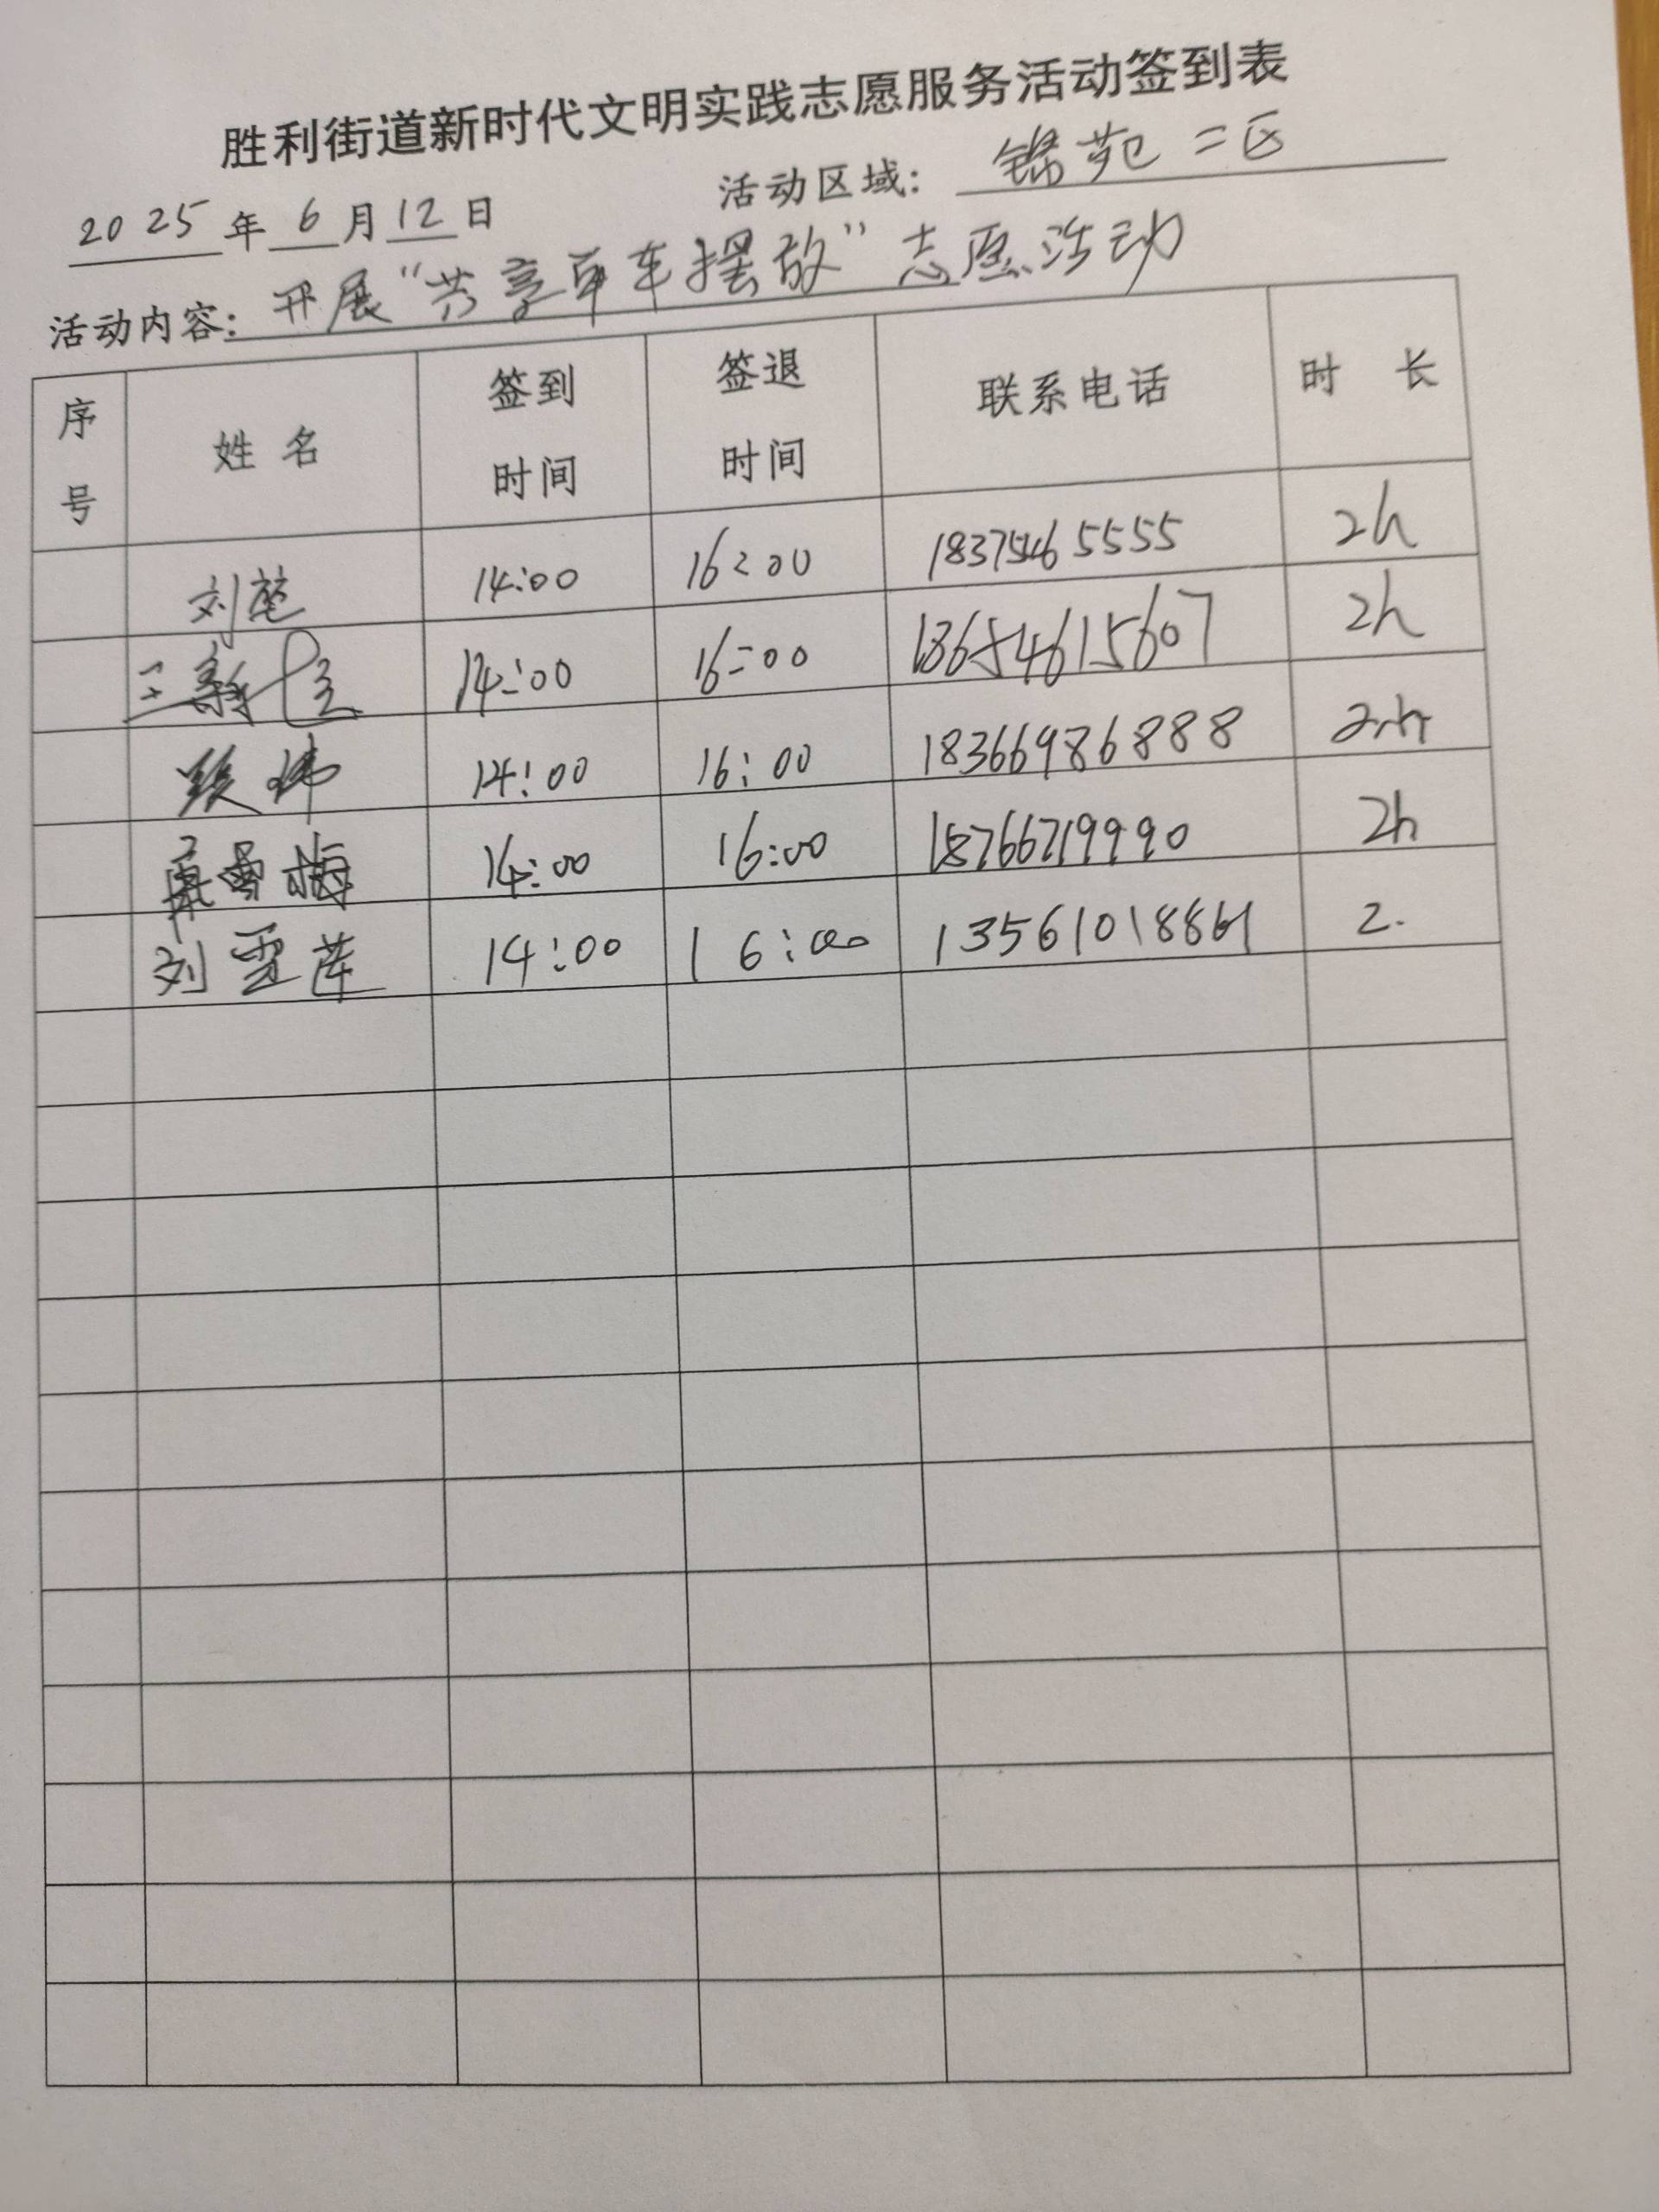 胜利街道新时代文明实践志愿服务活动签到表
2025年6月12日 活动区域：锦苑二区
活动内容：开展“共享单车摆放”志愿活动
序号 姓名 签到时间 签退时间 联系电话 时长
刘莛 14:00 16:00 18375465555 2h
14:00 16:00 18654615607 2h
14:00 16:00 18366986888 2h
雪梅 14:00 16:00 18766719990 2h
刘雪莲 14:00 16:00 13561018861 2.